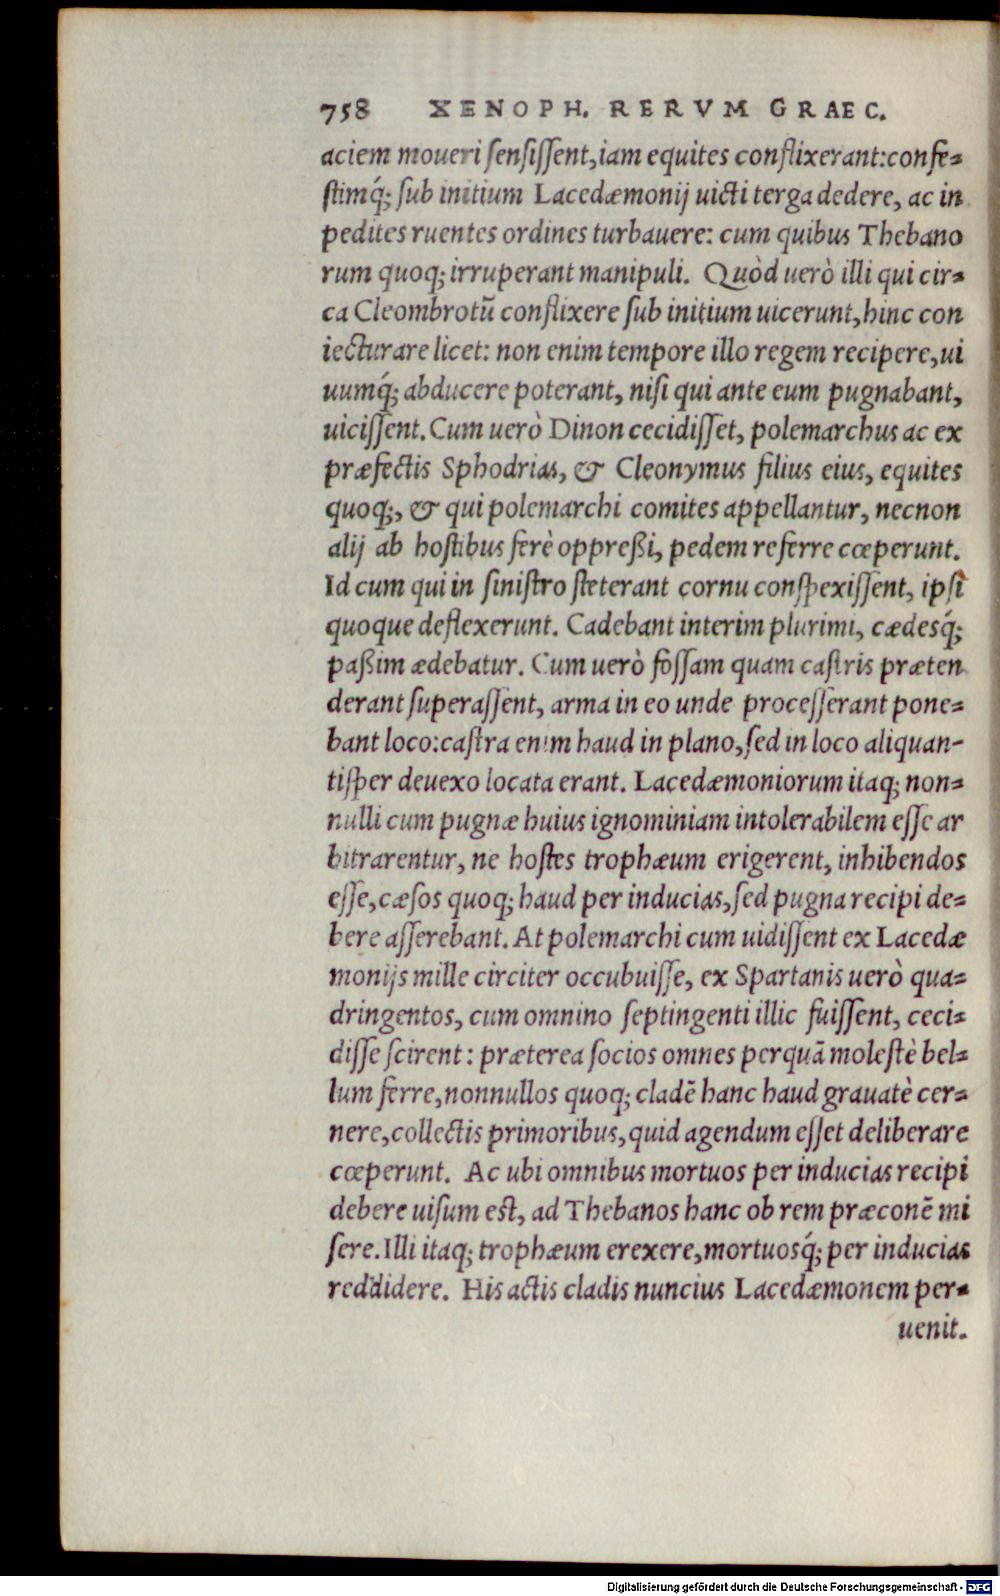 758 XENOPH. RERVM GRAEC.
aciem moueri ſenſiſſent,iam equites conflixerant:confe⸗
ſtimq́; ſub initium Lacedæmonij uicti terga dedere, ac in
pedites ruentes ordines turbauere: cum quibus Thebano
rum quoq; irruperant manipuli. Quòd uerò illi qui cir⸗
ca Cleombrotū conflixere ſub initium uicerunt,hinc con
iecturare licet: non enim tempore illo regem recipere,ui
uumq́; abducere poterant, niſi qui ante eum pugnabant,
uiciſſent. Cum uerò Dinon cecidiſſet, polemarchus ac ex
præfectis Sphodrias, & Cleonymus filius eius, equites
quoq;, & qui polemarchi comites appellantur, necnon
alij ab hoſtibus ferè oppreßi, pedem referre cœperunt.
Id cum qui in ſiniſtro ſteterant cornu conſpexiſſent, ipſi
quoque deflexerunt. Cadebant interim plurimi, cædesq́;
paßim ædebatur. Cum uerò foſſam quam caſtris præten
derant ſuperaſſent, arma in eo unde proceſſerant pone⸗
bant loco:caſtra enim haud in plano,ſed in loco aliquan-
tiſper deuexo locata erant. Lacedæmoniorum itaq; non⸗
nulli cum pugnæ huius ignominiam intolerabilem eſſe ar
bitrarentur, ne hoſtes trophæum erigerent, inhibendos
eſſe,cæſos quoq; haud per inducias,ſed pugna recipi de⸗
bere aſſerebant. At polemarchi cum uidiſſent ex Lacedæ
monijs mille circiter occubuiſſe, ex Spartanis uerò qua⸗
dringentos, cum omnino ſeptingenti illic fuiſſent, ceci⸗
diſſe ſcirent: præterea ſocios omnes perquā moleſtè bel⸗
lum ferre,nonnullos quoq; cladē hanc haud grauatè cer⸗
nere,collectis primoribus,quid agendum eſſet deliberare
cœperunt. Ac ubi omnibus mortuos per inducias recipi
debere uiſum eſt, ad Thebanos hanc ob rem præconē mi
ſere. Illi itaq; trophæum erexere,mortuosq́; per inducias
reddidere. His actis cladis nuncius Lacedæmonem per⸗
uenit.
Digitalisierung gefördert durch die Deutsche Forschungsgemeinschaft - DFG